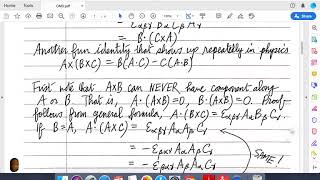 OM3.pdf
= εαβγ Dα Cβ Mγ
= B·(C×A)
Another fun identity that shows up repeatedly in physics
A×(B×C) = B(A·C) − C(A·B)
First note that A×B can NEVER have component along
A or B. That is, A·(A×B) = 0, B·(A×B) = 0. Proof-
follows from general formula, A·(B×C) = εαβγ Aα Bβ Cγ.
If B=A, A·(A×C) = εαβγ Aα Aβ Cγ
= −εβαγ Aα Aβ Cγ
SAME!
= −εβαγ Aβ Aα Cγ